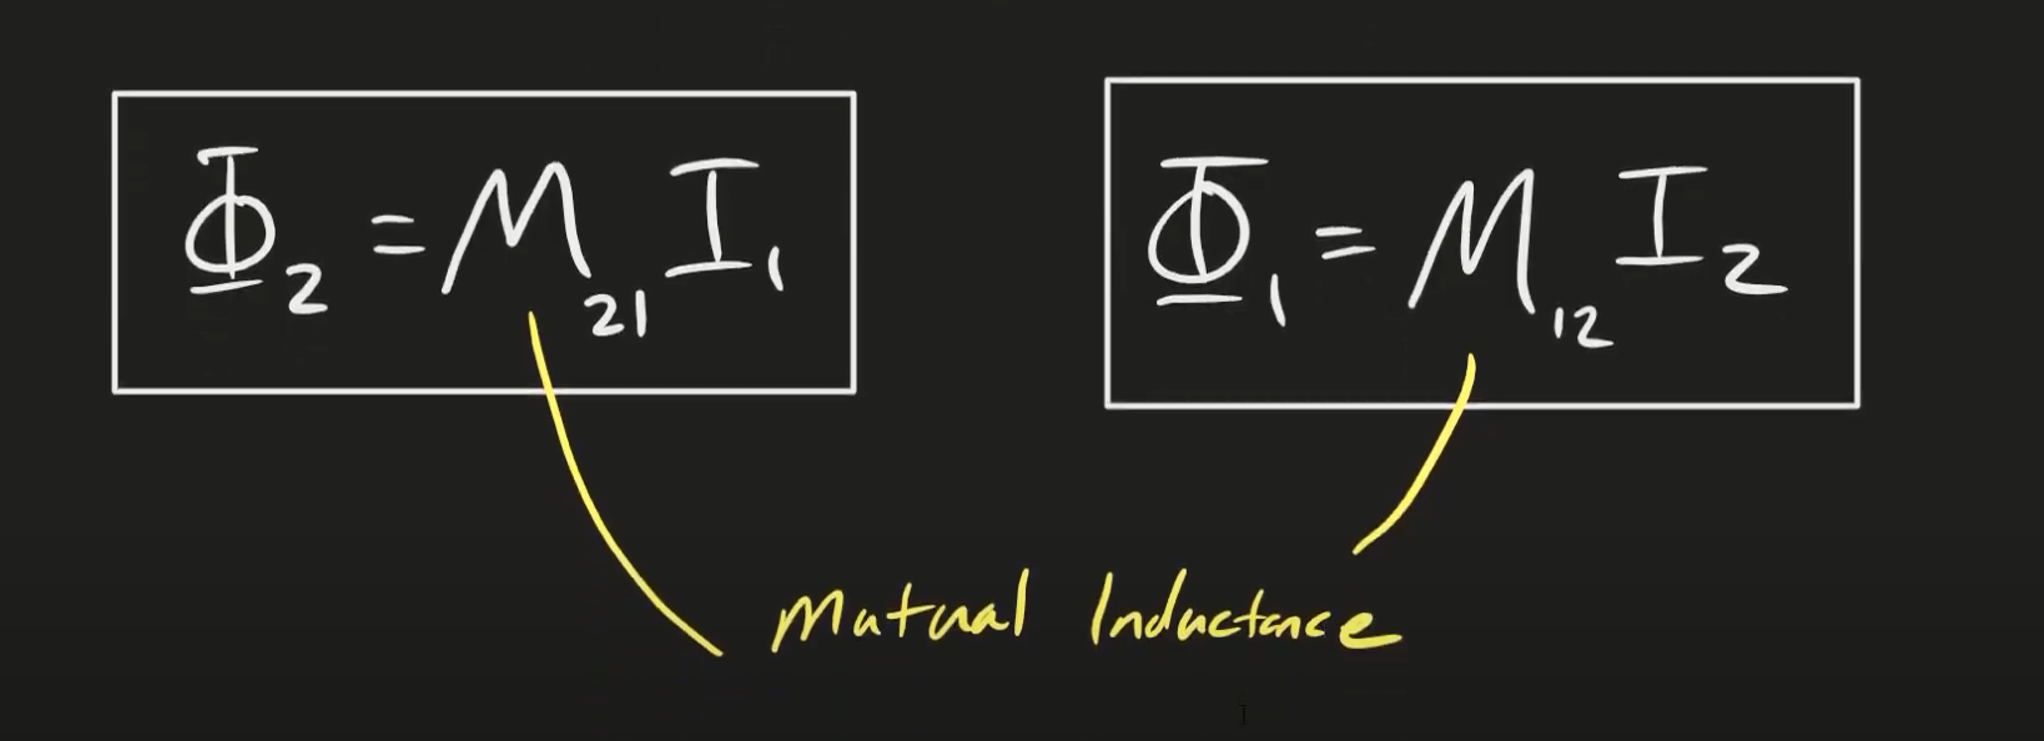 Φ₂ = M₂₁ I₁
Φ₁ = M₁₂ I₂
Mutual Inductance